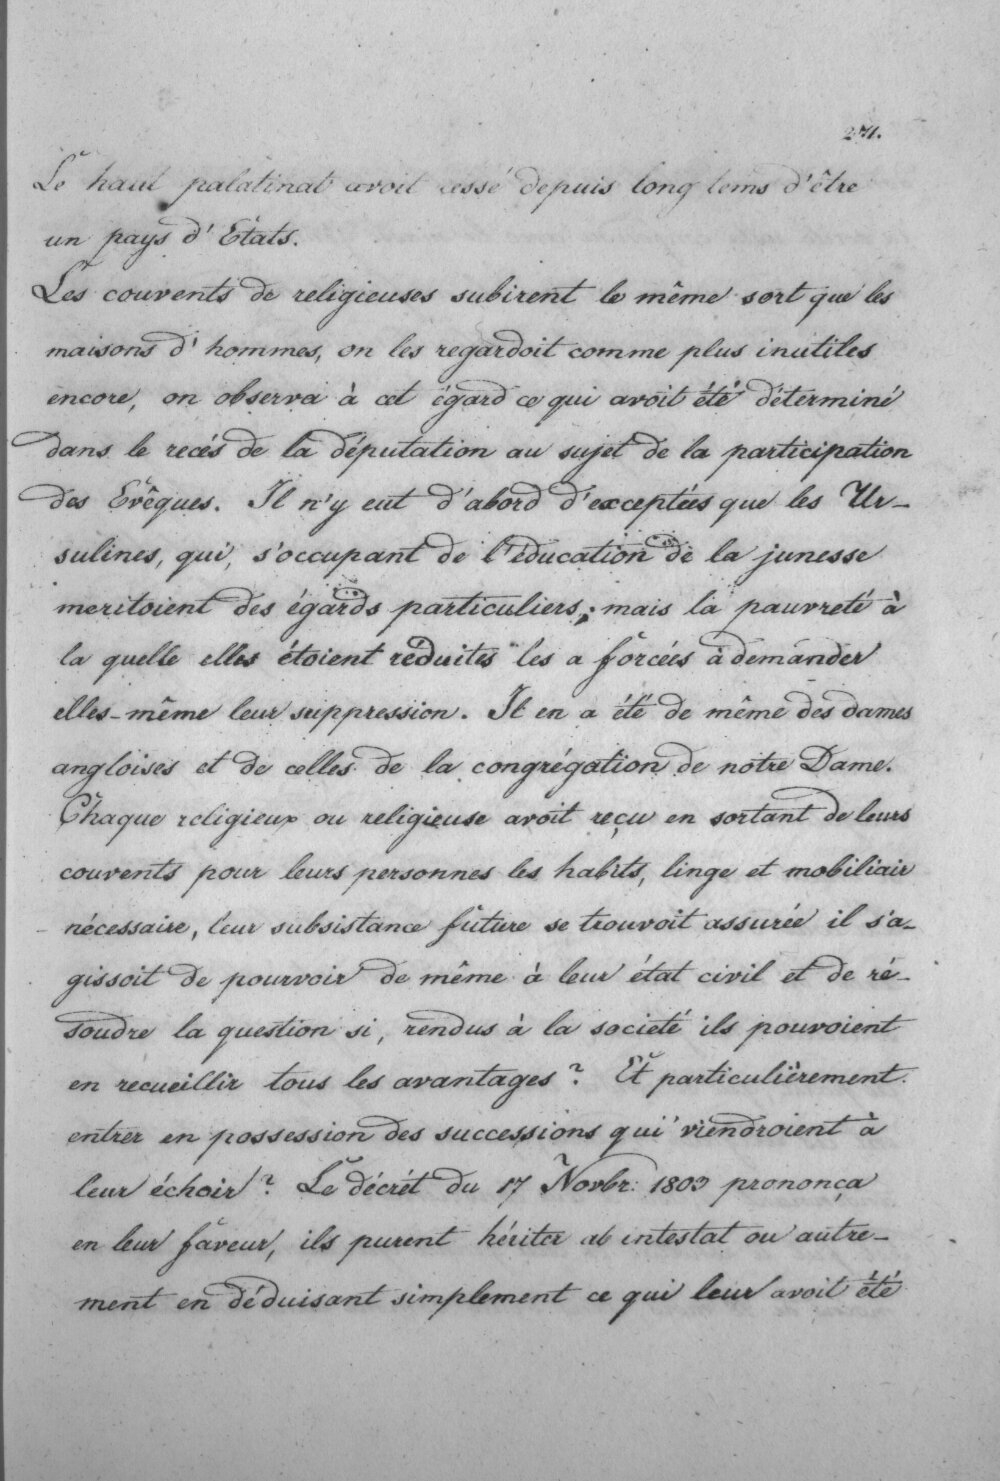 271.
Le haut palatinat avoit cessé depuis long tems d'être
un pays d'Etats.
Les couvents de religieuses subirent le même sort que les
maisons d'hommes, on les regardoit comme plus inutiles
encore, on observa à cet égard ce qui avoit été déterminé
dans le recés de la députation au sujet de la participation
des Evêques. Il n'y eut d'abord d'exceptées que les Ur-
sulines, qui, s'occupant de l'éducation de la junesse
meritoient des égards particuliers; mais la pauvreté à
la quelle elles étoient réduites les a forcées à demander
elles-même leur suppression. Il en a été de même des dames
angloises et de celles de la congrégation de notre Dame.
Chaque religieux ou religieuse avoit reçu en sortant de leurs
couvents pour leurs personnes les habits, linge et mobiliair
nécessaire, leur subsistance future se trouvoit assurée il s'a-
gissoit de pourvoir de même à leur état civil et de ré-
soudre la question si, rendus à la societé ils pouvoient
en recueillir tous les avantages? Et particulièrement
entrer en possession des successions qui viendroient à
leur échoir? Le décrét du 17 Novbr: 1803 prononça
en leur faveur, ils purent hériter ab intestat ou autre-
ment en déduisant simplement ce qui leur avoit été